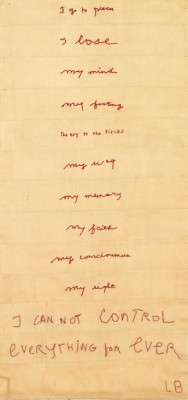 I go to pieces
I lose
my mind
my footing
the key to the
my way
my memory
my faith
my
my sight
I CAN NOT CONTROL
EVERYTHING FOR EVER
LB